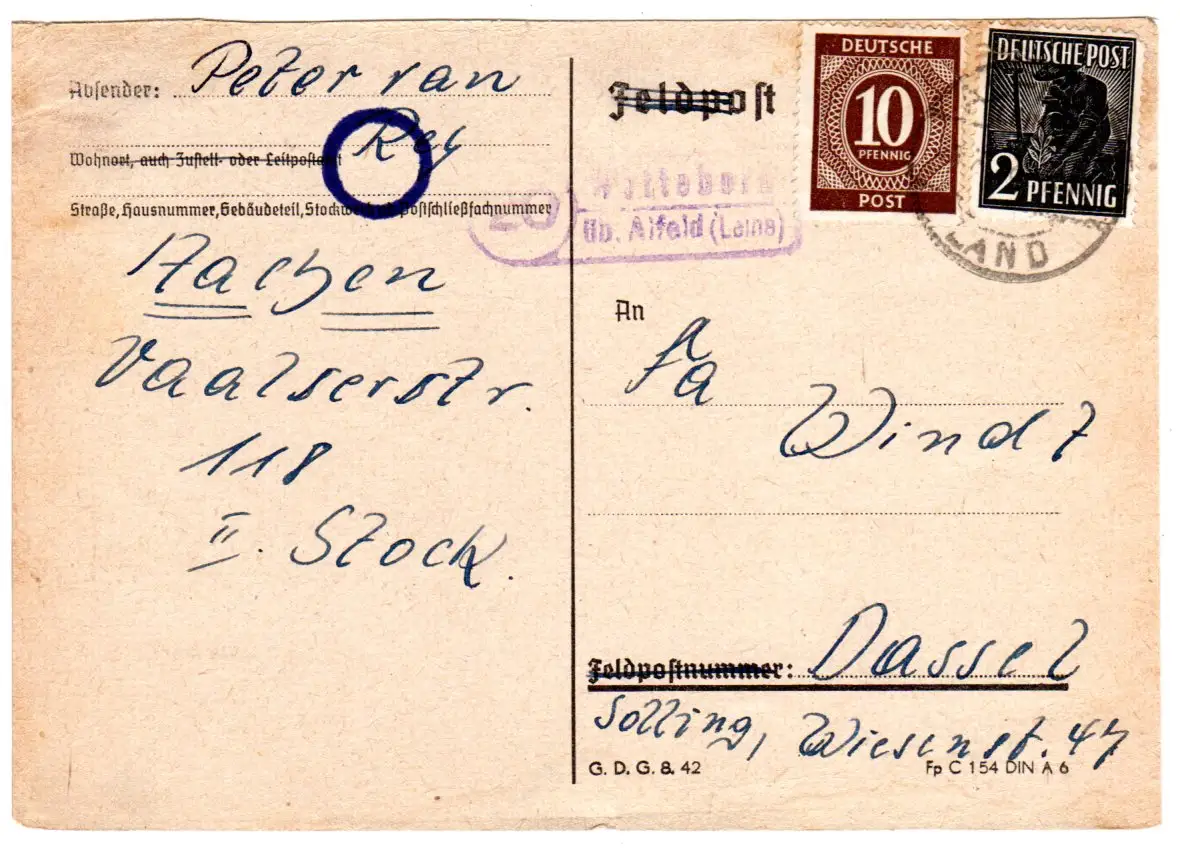 Absender: Peter van
Rey
Wohnort, auch Zustell- oder Leitpostamt
Straße, Hausnummer, Gebäudeteil, Stockwerk od. Postschließfachnummer
Aachen
Vaalserstr.
118
II. Stock.
Feldpost
DEUTSCHE
10
PFENNIG
POST
DEUTSCHE POST
2 PFENNIG
LAND
20
üb. Alfeld (Leine)
An
Fa
Windt
Feldpostnummer: Dassel
Solling, Wiesenst. 47
G. D. G. 8. 42
Fp C 154 DIN A 6